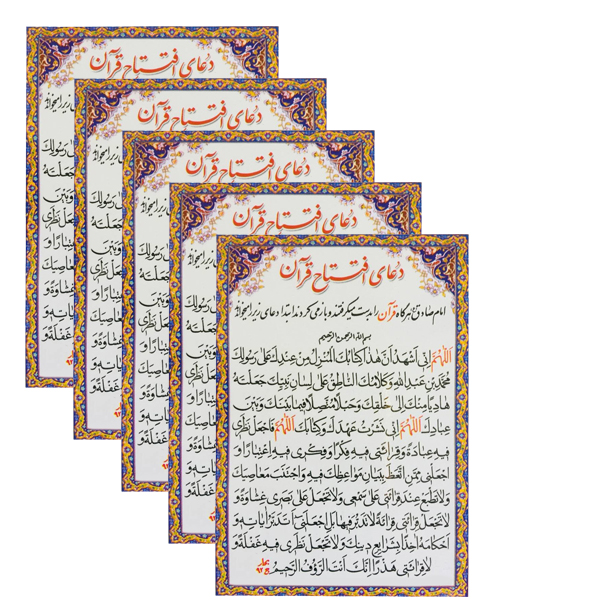 دعای افتتاح قرآن
دعای افتتاح قرآن
دعای افتتاح قرآن
دعای افتتاح قرآن
دعای افتتاح قرآن
امام صادق (ع) هر گاه قرآن را بدست میگرفتند و باز می کردند ابتدا دعای زیر را میخواند
بسم الله الرحمن الرحیم
اَللّهُمَّ اِنّی اَشْهَدُ اَنَّ هذا کِتابُکَ الْمُنْزَلُ مِنْ عِنْدِکَ عَلی رَسُولِکَ
مُحَمَّدِ بْنِ عَبْدِ اللّهِ وَ کَلامُکَ النّاطِقُ عَلی لِسانِ نَبِیِّکَ جَعَلْتَهُ
هادِیاً مِنْکَ اِلی خَلْقِکَ وَ حَبْلاً مُتَّصِلاً فیما بَیْنَکَ وَ بَیْنَ
عِبادِکَ اَللّهُمَّ اِنّی نَشَرْتُ عَهْدَکَ وَ کِتابَکَ اَللّهُمَّ فَاجْعَلْ نَظَری
فیهِ عِبادَةً وَ قِرائَتی فیهِ فِکْراً وَ فِکْری فیهِ اِعْتِباراً وَ
اجْعَلْنی مِمَّنِ اتَّعَظَ بِبَیانِ مَواعِظِکَ فیهِ وَ اجْتَنَبَ مَعاصیکَ
وَ لا تَطْبَعْ عِنْدَ قِرائَتی عَلی سَمْعی وَ لا تَجْعَلْ عَلی بَصَری غِشاوَةً وَ
لا تَجْعَلْ قِرائَتی قِرائَةً لا تَدَبُّرَ فیها بَلِ اجْعَلْنی اَتَدَبَّرُ ایاتِهِ وَ
اَحْکامَهُ اخِذاً بِشَرایِعِ دینِکَ وَ لا تَجْعَلْ نَظَری فیهِ غَفْلَةً وَ
لا قِرائَتی هَذَراً اِنَّکَ اَنْتَ الرَّؤُفُ الرَّحیمُ